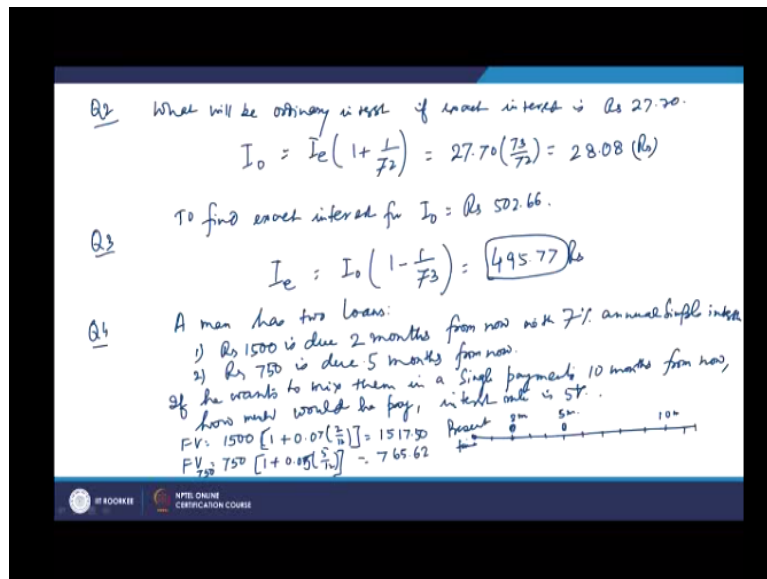 Q2 What will be ordinary interest if exact interest is Rs 27.70.
I₀ = Ie (1 + 1/72) = 27.70 (73/72) = 28.08 (Rs)
To find exact interest for I₀ = Rs 502.66.
Q3
Ie = I₀ (1 - 1/73) = 495.77 Rs
Q4 A man has two loans:
1) Rs 1500 is due 2 months from now with 7% annual simple interest
2) Rs 750 is due 5 months from now.
If he wants to mix them in a single payment 10 months from now,
how much would he pay, interest rate is 5%.
FV: 1500 [1 + 0.07 (2/12)] = 1517.50
Present 2m 5m 10m
FV750 : 750 [1 + 0.05 (5/12)] = 765.62
IIT ROORKEE NPTEL ONLINE
CERTIFICATION COURSE